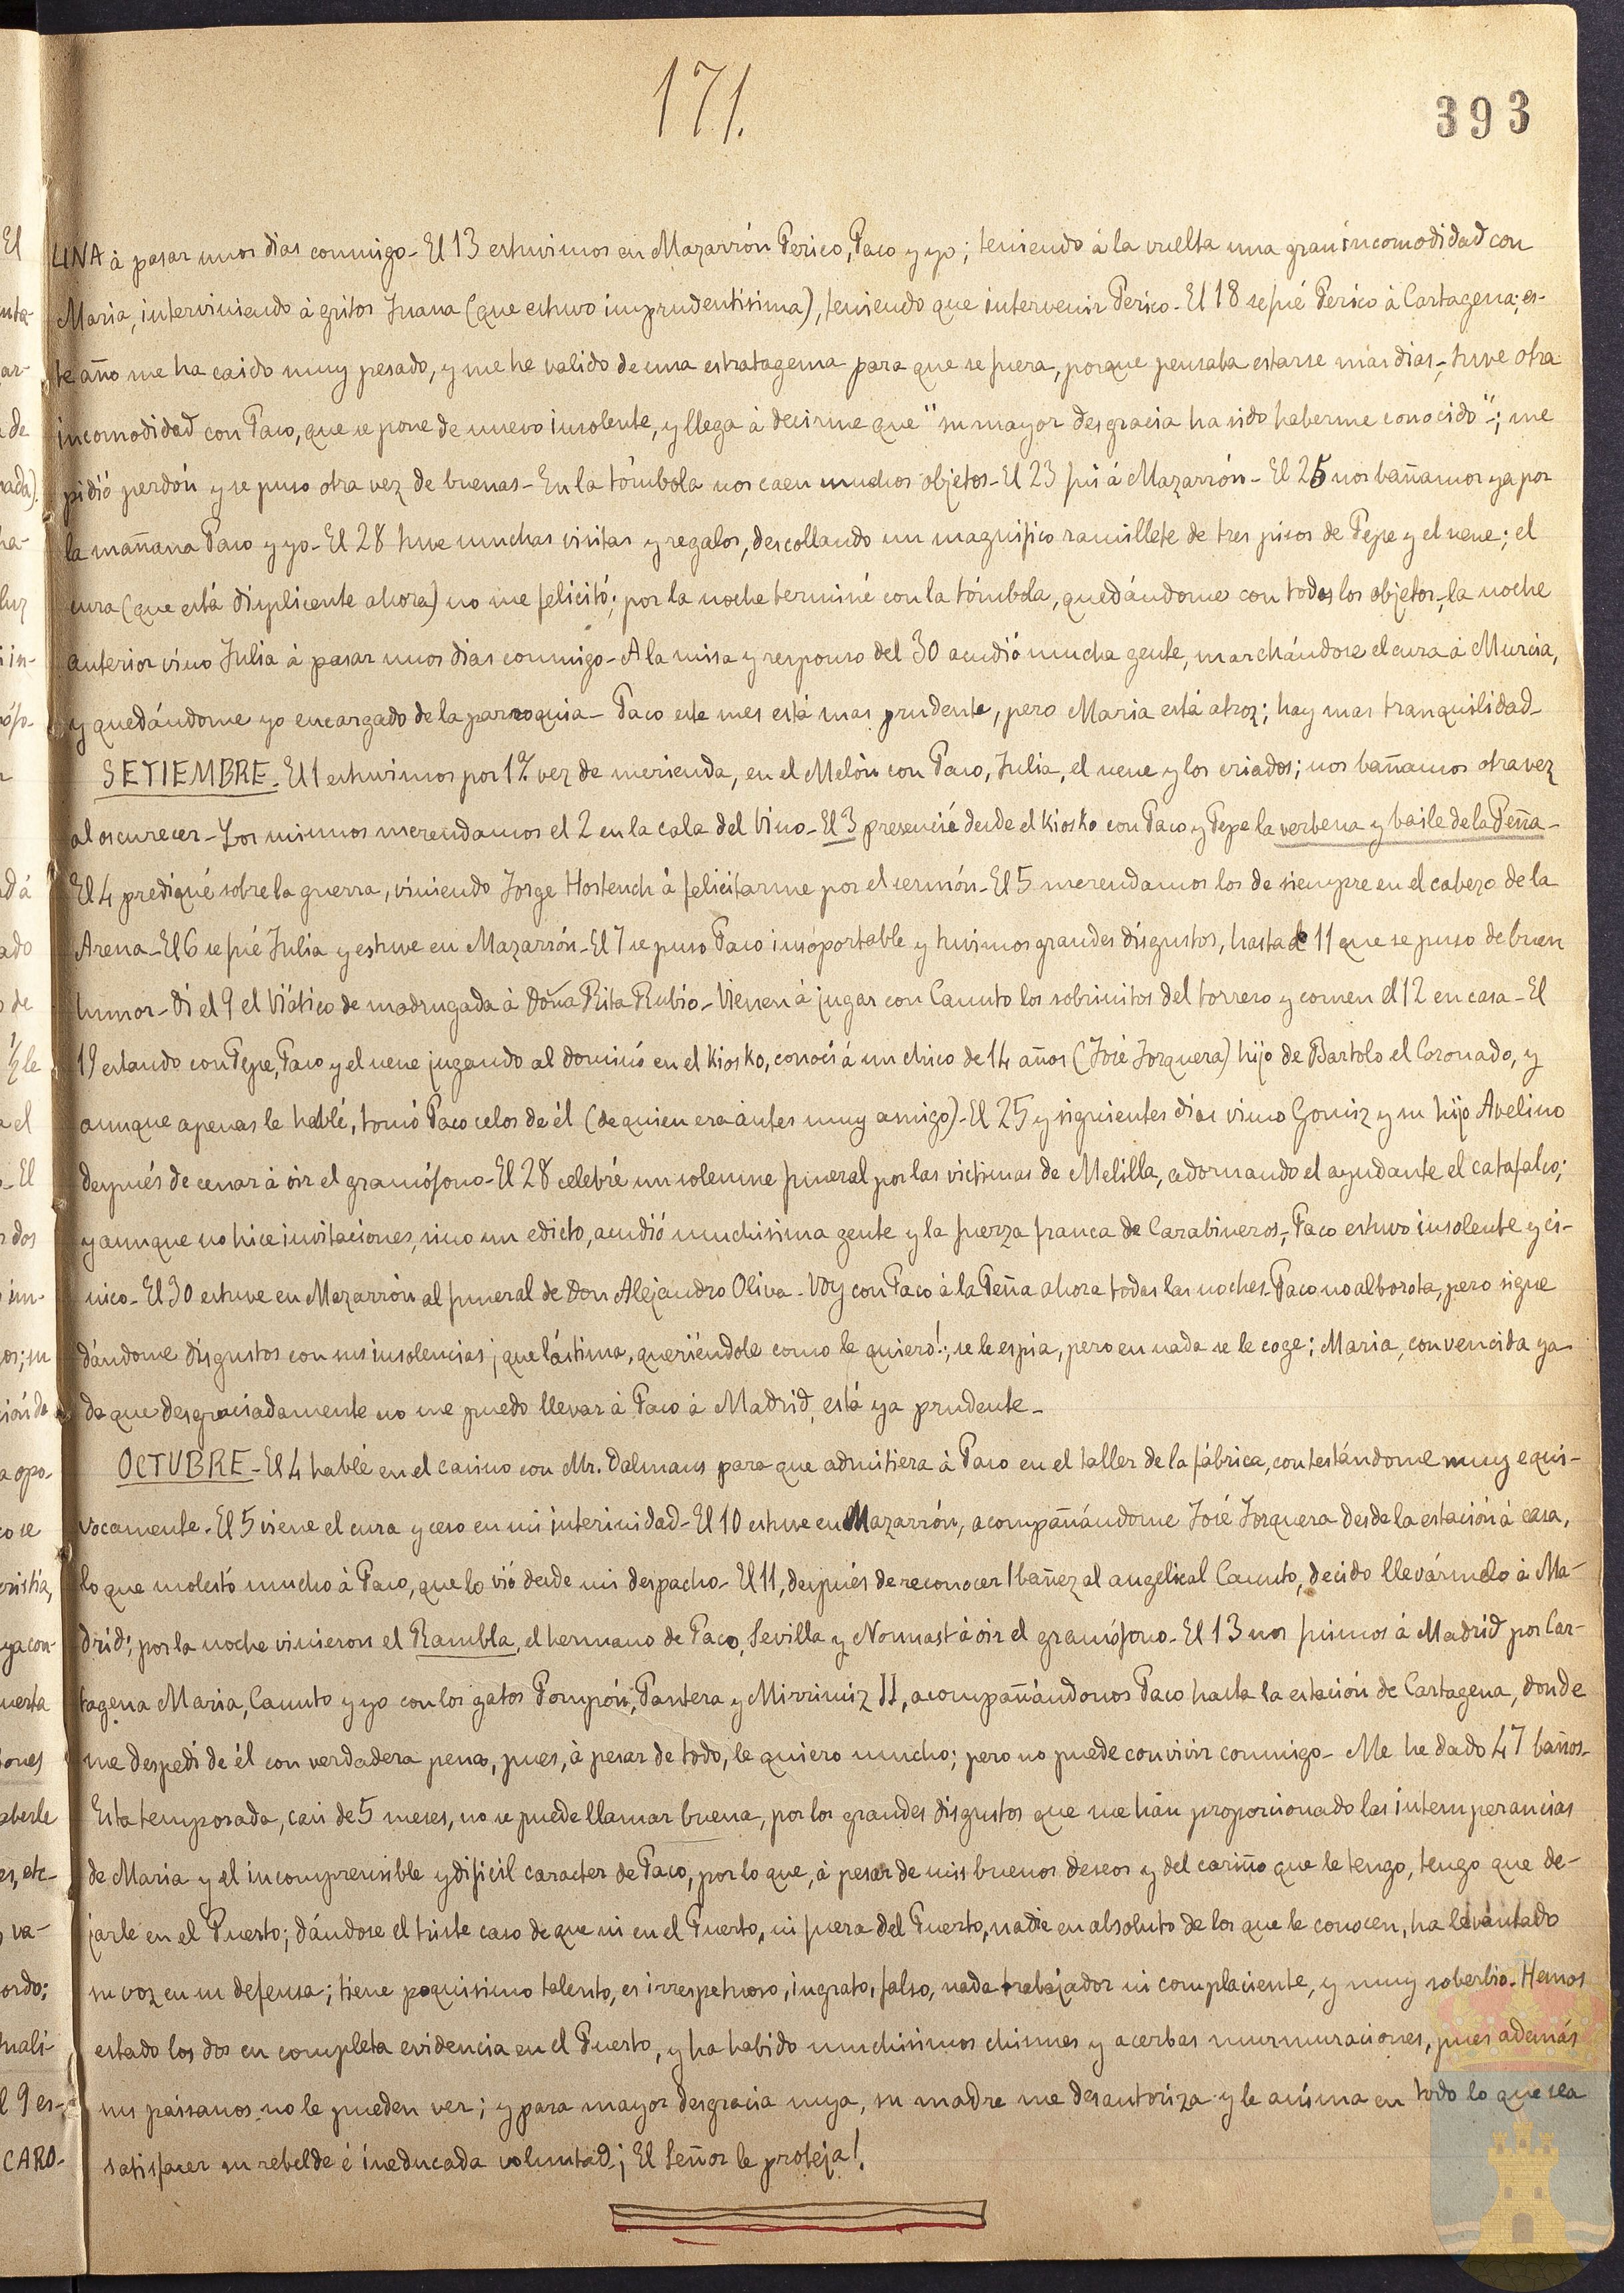 171.
393
LINA à pasar unos dias conmigo - El 13 estuvimos en Mazarrón Perico, Paco y yo; teniendo á la vuelta una gran incomodidad con
Maria, interviniendo à gritos Juana (que estuvo imprudentísima), teniendo que intervenir Perico - El 18 se fué Perico à Cartagena; es-
te año me ha caido muy pesado, y me he valido de una estratagema para que se fuera, porque pensaba estarse mas dias -; tuve otra
incomodidad con Paco, que se pone de nuevo insolente, y llega à decirme que "su mayor desgracia ha sido haberme conocido"-; me
pidió perdón y se puso otra vez de buenas - En la tómbola nos caen muchos objetos - El 23 fui á Mazarrón - El 25 nos bañamos ya por
la mañana Paco y yo - El 28 tuve muchas visitas y regalos, descollando un magnifico ramillete de tres pisos de Pepe y el nene; el
cura (que está displicente ahora) no me felicitó; por la noche terminé con la tómbola, quedándome con todos los objetos -, la noche
anterior vino Julia à pasar unos dias conmigo - A la misa y responso del 30 acudió mucha gente, marchándose el cura à Murcia,
y quedándome yo encargado de la parroquia - Paco este mes está mas prudente, pero Maria está atroz; hay mas tranquilidad -
SETIEMBRE - El 1 estuvimos por 1ª vez de merienda, en el Melón con Paco, Julia, el nene y los criados; nos bañamos otra vez
al oscurecer - Los mismos merendamos el 2 en la cala del Vino - El 3 presencié desde el Kiosko con Paco y Pepe la verbena y baile de la Peña -
El 4 prediqué sobre la guerra, viniendo Jorge Hostench à felicitarme por el sermón - El 5 merendamos los de siempre en el cabezo de la
Arena - El 6 se fué Julia y estuve en Mazarrón - El 7 se puso Paco insoportable y tuvimos grandes disgustos, hasta el 11 que se puso de buen
humor - Di el 9 el Viático de madrugada à Doña Rita Rubio - Vienen à jugar con Canuto los sobrinitos del torrero y comen el 12 en casa - El
19 estando con Pepe, Paco y el nene jugando al dominó en el Kiosko, conocí á un chico de 14 años (José Jorquera) hijo de Bartolo el Coronado, y
aunque apenas le hablé, tomó Paco celos de él (de quien era ántes muy amigo) - El 25 y siguientes dias vino Gomiz y su hijo Avelino
después de cenar à oir el gramófono - El 28 celebré un solemne funeral por las victimas de Melilla, adornando el ayudante el catafalco;
y aunque no hice invitaciones, sino un edicto, acudió muchisima gente y la fuerza franca de Carabineros -, Paco estuvo insolente y cí-
nico - El 30 estuve en Mazarrón al funeral de Don Alejandro Oliva - Voy con Paco à la Peña ahora todas las noches - Paco no alborota, pero sigue
dándome disgustos con sus insolencias ¡que lástima, queriéndole como le quiero!; se le espia, pero en nada se le coge; Maria, convencida ya
de que desgraciadamente no me puedo llevar à Paco à Madrid, está ya prudente -
OCTUBRE - El 4 hablé en el casino con Mr. Dalmaus para que admitiera à Paco en el taller de la fábrica, contestándome muy equi-
vocamente - El 5 viene el cura y ceso en mi interinidad - El 10 estuve en Mazarrón, acompañándome José Jorquera desde la estación à casa,
lo que molestó mucho à Paco, que lo vió desde mi despacho - El 11, después de reconocer Ibañez al angelical Canuto, decido llevármelo à Ma-
drid; por la noche vinieron el Rambla, el hermano de Paco, Sevilla y Nomast à oir el gramófono - El 13 nos fuimos á Madrid por Car-
tagena Maria, Canuto y yo con los gatos Pompón, Pantera y Mirrimiz II, acompañándonos Paco hasta la estación de Cartagena, donde
me despedí de él con verdadera pena, pues, à pesar de todo, le quiero mucho; pero no puede convivir conmigo - Me he dado 47 baños -
Esta temporada, casi de 5 meses, no se puede llamar buena, por los grandes disgustos que me hán proporcionado las intemperancias
de Maria y el incomprensible y dificil caracter de Paco, por lo que, à pesar de mis buenos deseos y del cariño que le tengo, tengo que de-
jarle en el Puerto; dándose el triste caso de que ni en el Puerto, ni fuera del Puerto, nadie en absoluto de los que le conocen, ha levantado
su voz en su defensa; tiene poquisimo talento, es irrespetuoso, ingrato, falso, nada trabajador ni complaciente, y muy soberbio - Hemos
estado los dos en completa evidencia en el Puerto, y ha habido muchisimos chismes y acerbas murmuraciones, pues además
sus paisanos no le pueden ver; y para mayor desgracia suya, su madre me desautoriza y le anima en todo lo que sea
satisfacer su rebelde é ineducada voluntad; ¡El Señor le proteja!